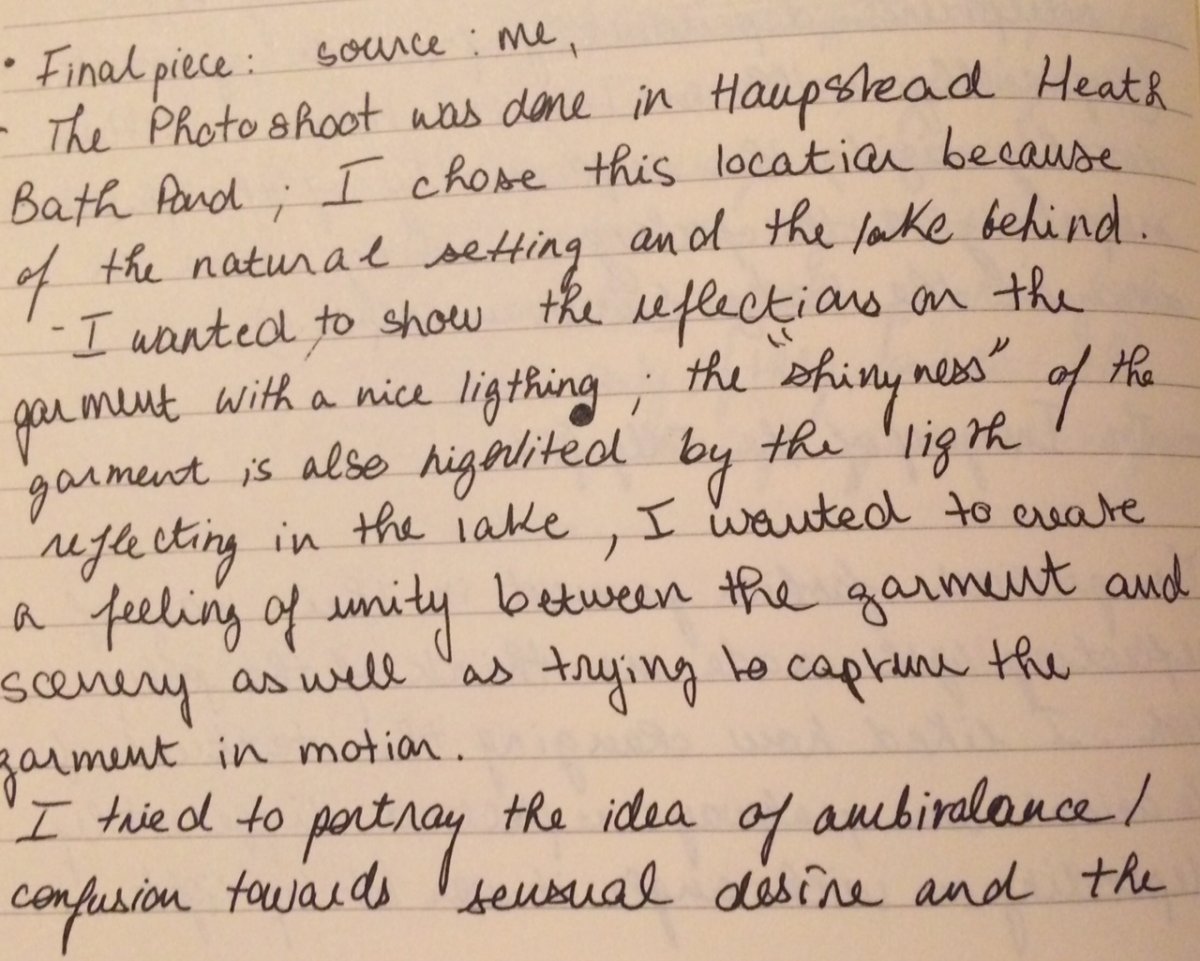 • Final piece : source : me,
- The Photoshoot was done in Haupstead Heath
Bath Pond ; I chose this location because
of the natural setting and the lake behind.
- I wanted to show the reflections on the
garment with a nice ligthing ; the "shinyness" of the
garment is also higovlited by the ligth
reflecting in the lake , I wanted to create
a feeling of unity between the garment and
scenery as well as trying to capture the
garment in motion.
I tried to portray the idea of ambivalance /
confusion towards sensual desire and the